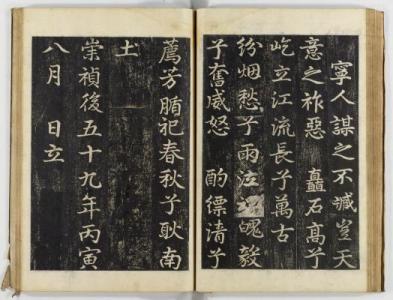 寧人謀之不臧豈天
意之祚惡 矗石高兮
屹立江流長兮萬古
紛烟愁兮雨泣魂魄毅
兮奮威怒 酌縹清兮
薦芳腯祀春秋兮耿南
土
崇禎後五十九年丙寅
八月 日立